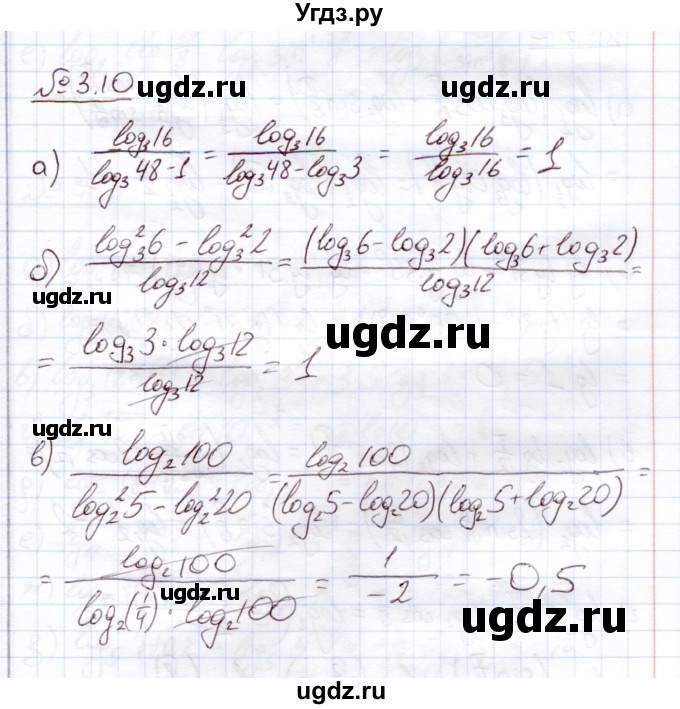 Угдз.ру
№ 3.10 ugdz.ru ugdz.ru
а) log₃16 / (log₃48 − 1) = log₃16 / (log₃48 − log₃3) = log₃16 / log₃16 = 1
ugdz.ru
б) (log₃²6 − log₃²2) / log₃12 = (log₃6 − log₃2)(log₃6 + log₃2) / log₃12 =
ugdz.ru
= log₃3 · log₃12 / log₃12 = 1
ugdz.ru
в) log₂100 / (log₂²5 − log₂²20) = log₂100 / ((log₂5 − log₂20)(log₂5 + log₂20)) =
= log₂100 / (log₂(1/4) · log₂100) = 1 / −2 = −0,5
ugdz.ru ugdz.ru
ugdz.ru